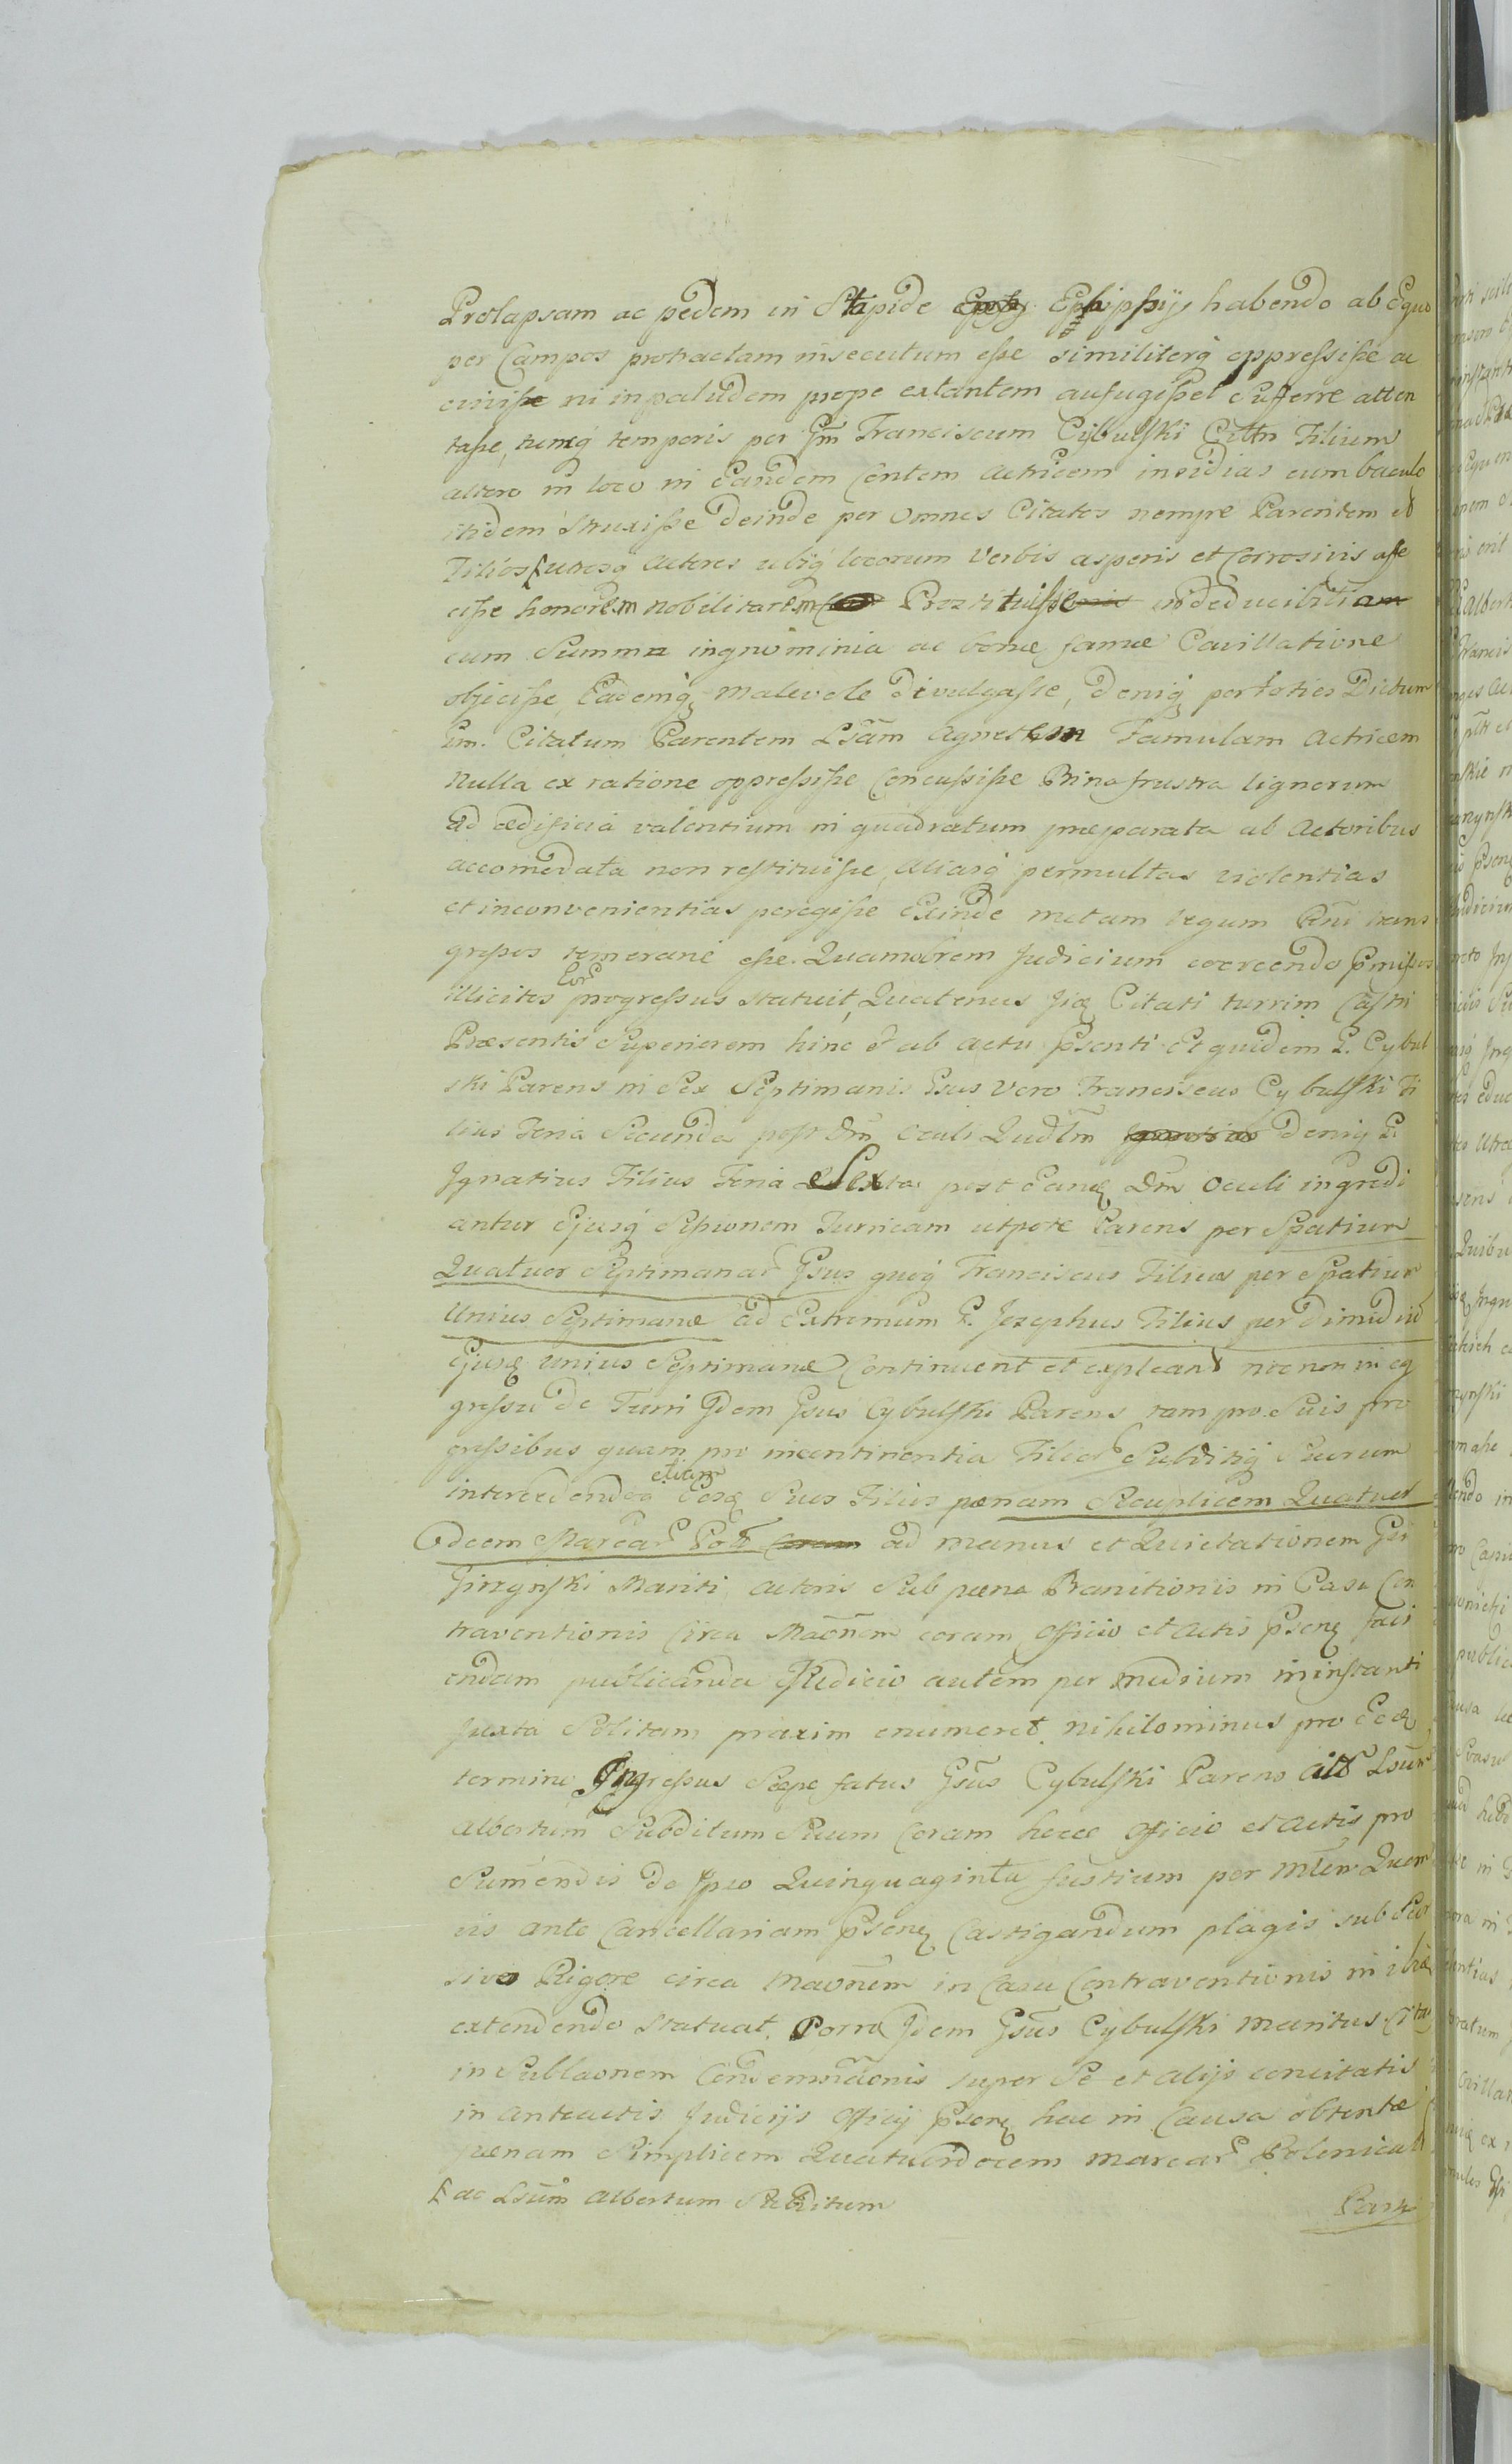 Prolapsam ac pedem in Stapide Ephippijs habendo ab Equo
per Campos protractam insecutum esse similiterq oppressisse ac
ni in paludem prope extantem aufugisset Sufferre atten
tasse, tuncq temporis per Gm Franciscum Cybulski Cittm Filium
altero in loco in Eandem Contem Actricem insidias cum baculo
itidem Struxisse deinde per Omnes Citatos nempe Parentem et
Filios utrosq Actores ubiq locorum Verbis asperis et Corrosivis affe
cisse honorem nobilitarem Prostituisse
cum Summa ingnominia ac bonæ famæ Cavillatione
objecisse, Eademq malevole divulgasse, deniq per toties Dictum
Gm. Citatum Parentem Lsam Agnetem Famulam Actricem
Nulla ex ratione oppressisse Concussisse Bina frustra lignorum
ad ædificia valentium in quadratum præparata ab Actoribus
accomodata non restituisse, Aliasq permultas violentias
et inconvenientias peregisse Exinde metam legum Rni trans
gressos temerarie esse. Quamobrem Judicium coercendo pmissos
illicitos Eor progressus statuit, Quatenus Jidē Citati turrim Castri
Præsentis Superiorem hinc et ab actu psenti Et quidem G. Cybul
ski Parens in Sex Septimanis Gsus Vero Franciscus Cybulski Fi
lius Feria Secunda post Dnm Oculi Qudlm deniq G
Ignatius Filius Feria Sexta post Eandē Dm Oculi ingredi
antur Ejusq Sessionem Turricam utpote Parens per Spatium
Quatuor Septimanar Gsus quoq Franciscus Filius per Spatium
Unius Septimanæ ad Extremum G. Josephus Filius per dimidiu
Ejusdē unius Septimanæ Continuent et expleant necnon in eg
gressu de Turri Idem Gsus Cybulski Parens tam pro Suis pro
gressibus quam pro incontinentia Filior Subditiq Suorum
intercedendoq etiam Eosdē Suos Filios pænam Sexuplicem Quatuor
decem Marcar Pol ad manus et Quietationem Gsi
Jirzynski Mariti Actoris Sub pæna Banitionis in Casu Con
traventionis Circa Maōnem coram Officio et Actis psent faci
endam publicanda Judicio autem per medium in instanti
juxta Solitam praxim enumeret nihilominus pro Eodē
termino Ingressus Sæpe fatus Gsus Cybulski Parens Citt Lsum
Albertum Subditum Suum Coram hocce Officio et Actis pro
Sumendis de Ipso Quinquaginta fustium per Mlrm Quem
vis ante Cancellariam psent Castigandum plagis sub Suc
sivo Rigore circa Maōnem in Casu Contraventionis in ibidē
extendendo Statuat. Porro Idem Gsus Cybulski Maritus Cita
in Sublaōnem Condemnaōnis super Se et alijs concitatis
in anteactis Judicijs Officij psent hac in Causa obtentæ
pænam Simplicem Quatuordecem marcar Polonical
ac Lsum Albertum Subditum
Part